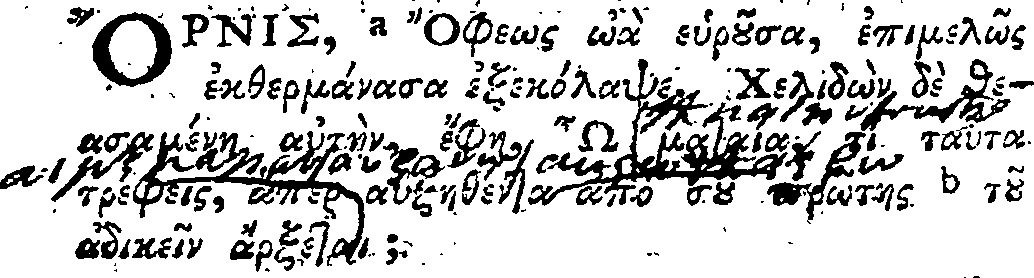 ὌΡΝΙΣ, a Ὄφεως ὠὰ εὑροῦσα, ἐπιμελῶς
ἐκθερμάνασα ἐξεκόλαψε. Χελιδὼν δὲ θε-
ασαμένη αὐτὴν, ἔφη, Ὦ ματαία, τί ταῦτα
τρέφεις, ἅπερ αὐξηθέντα ἀπὸ σοῦ πρώτης b τοῦ
ἀδικεῖν ἄρξεται;